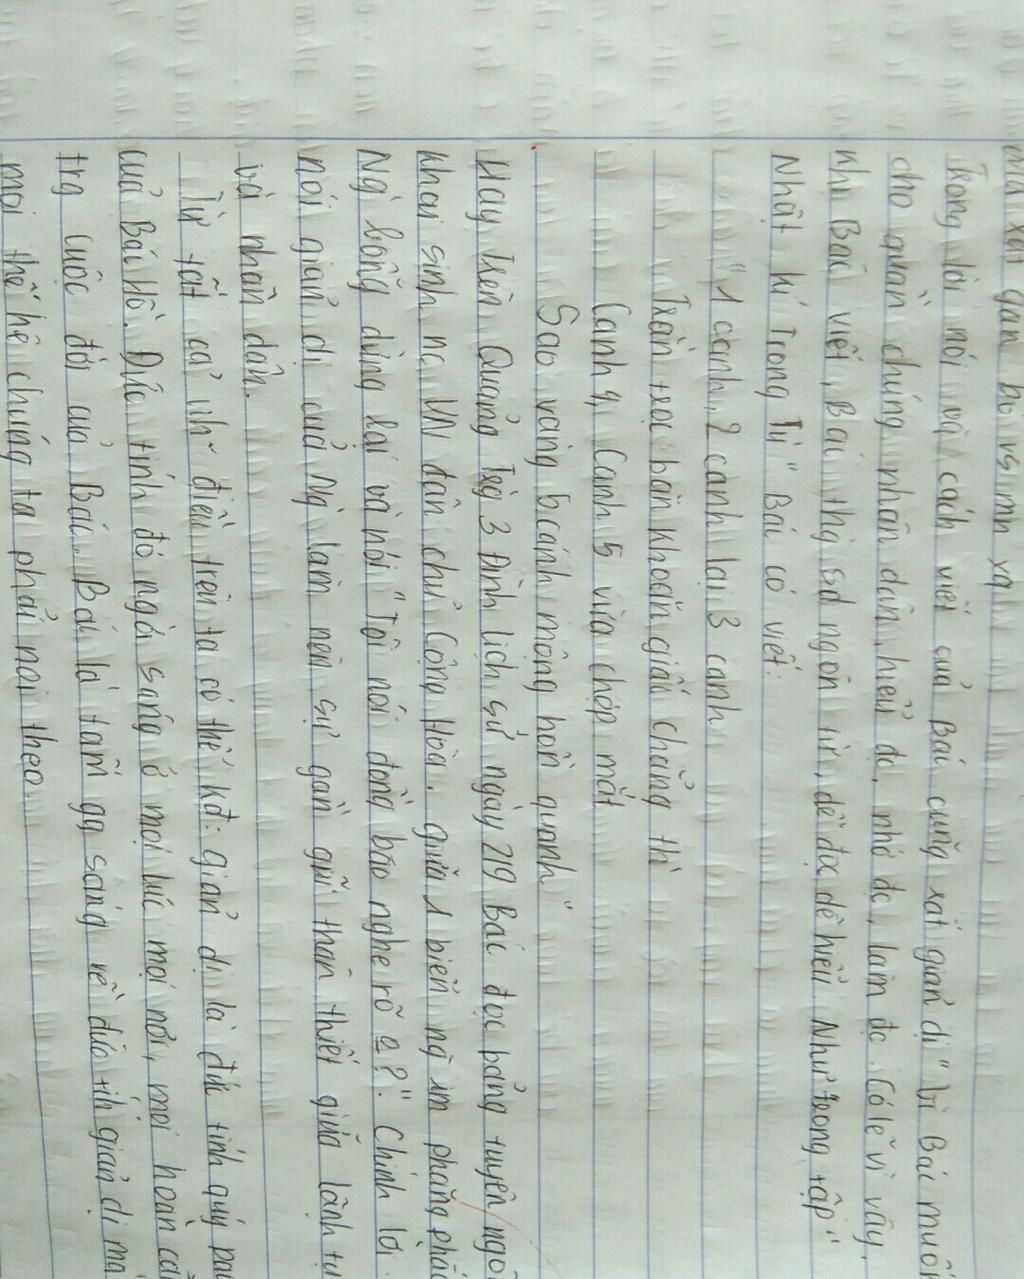 gian
Trong lời nói và cách viết của Bác cũng rất giản dị "Vì Bác muốn
cho quần chúng nhân dân, hiểu đc, nhớ đc, làm đc. Có lẽ vì vậy,
khi Bác viết, Bác thg sd ngôn từ, dễ đọc dễ hiểu Như trong tập"
Nhật kí Trong Tù" Bác có viết:
"1 canh, 2 canh lại 3 canh
Trằn trọc băn khoăn giấc chẳng th
Canh 4, Canh 5 vừa chợp mắt
Sao vàng 5 cánh mộng hồn quanh"
Hay trên Quảng Trg 3 Đình lịch sử ngày 2/9 Bác đọc bảng tuyên ngô
khai sinh nc VN dân chủ Cộng Hòa. giữa 1 biển ng im phăng phắc
Ng bỗng dừng lại và nói "Tôi nói đồng bào nghe rõ k?". Chính lời
nói giản dị của Ng làm nên sự gần gũi thân thiết giữa lãnh tụ
và nhân dân.
Từ tất cả nh~ điều trên ta có thể kđ: giản dị là đức tính quý báu
của Bác Hồ. Đức tính đó ngời sáng ở mọi lúc mọi nơi, mọi hoàn cả
trg cuộc đời của Bác. Bác là tấm gg sáng về đức tih giản dị mà
mọi thế hệ chúng ta phải noi theo.